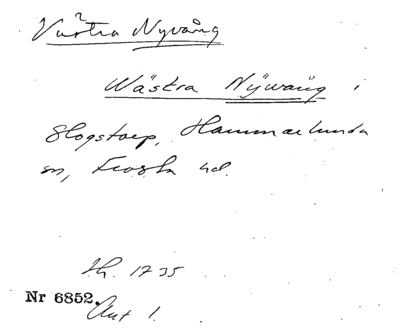 Västra Nyvång
Wästra Nÿwång i
Slogstorp, Hammarlunda
sn, Frosta hd.
Jb. 1735
Nr 6852.
Ant 1.